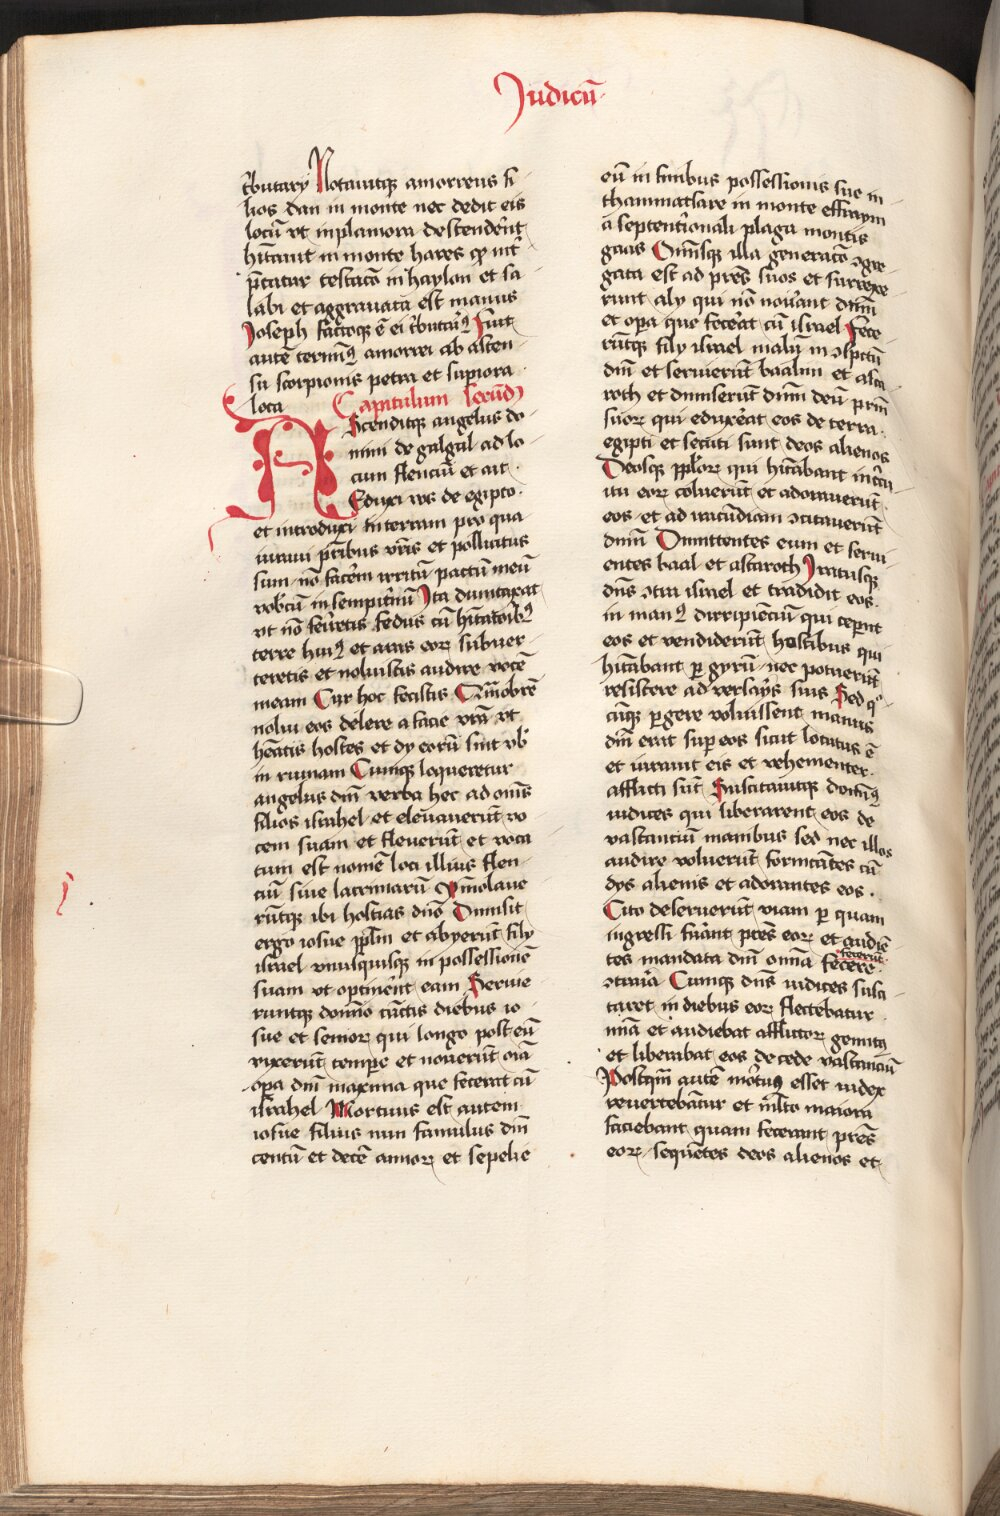 Judicū
t̄butarÿ Notauitqȝ amorreus fi
lios dan in monte nec dedit eis
locū vt in plamora descendēnt
hītauit in monte hares qꝫ int̄
p̄tatur testatō in haylon et sa
labi et aggrauata est manus
Joseph fāctoqȝ ē ei t̄butariꝰ Fuit
autē terminꝰ amorrei ab ascen
su scorpionis petra et supiora
loca Capitulum secūd
Ascenditqȝ angelus do
mini de galgal ad lo
cum flenciū et ait
Eduxi vos de egipto
et introduxi in terram pro qua
iuraui p̄tribus vr̄is et pollicitus
sum nō facēm irritū pactū meū
vobcū in sempit̄nū Ita dumtaxat
vt nō feīretis fedus cū hītatoībꝰ
terre huiꝰ et aras eoꝝ subuer
teretis et noluistis audire vocē
meam Cur hoc fecistis Quāobrē
nolui eos delere a facie vrā vt
hēatis hostes et dÿ eorū sint vb̄
in ruinam Cumqȝ loqueretur
angelus dn̄i verba hec ad om̄s
filios israhel et eleuauerūt vo
cem suam et fleuerūt et voca
tum est nomē loci illius flen
ciū siue lacrimarū Ymolaue
rūtqȝ ibi hostias dn̄o Dimisit
ergo iosue pplm̄ et abyerūt filÿ
israel vnusquisqȝ in possessionē
suam vt optinērt eam Seruie
runtqȝ domīo cūctis diebus io
sue et senioꝝ qui longo post eū
vixerūt tempe et nouerūt oīa
opa dn̄i maxima que fecerat cū
israhel Mortuus est autem
iosue filius nun famulus dn̄i
centū et decē annoꝝ et sepelie
eū in finibus possessionis sue in
thamnathsare in monte effraym
a septent̄onali plaga montis
gaas Om̄isqȝ illa generatō ɔgre
gata est ad pr̄es suos et surrexe
runt alÿ qui nō nouāt dn̄m
et opa que fecāt cū israel Fece
rūtqȝ filÿ israel malū in ɔspctū
dn̄i et seruierūt baalim et asta
roth et dimiserūt dn̄m deū pr̄m
suoꝝ qui eduxēat eos de terra
egipti et secuti sunt deos alienos
Deosqȝ pploꝝ qui hītabant in c̄cu
itu eoꝝ coluerūt et adorauerūt
eos et ad iracūdiam ɔcitauerūt
dn̄m Dimittentes eum et serui
entes baal et astaroth Iratusqȝ
dn̄s ɔtra israel et tradidit eos
in manꝰ dirripienciū qui ceperut
eos et vendiderūt hostibus qui
hītabant p gyrū nec potuerūt
resistere ad versarÿs suis Sed qͦ
cūqȝ pgere voluissent manus
dn̄i erat sup eos sicut locutus ē
et iurauit eis et vehementer
afflicti sūt Suscitauitqȝ domīꝰ
iudices qui liberarent eos de
vastanciū manibus sed nec illos
audire voluerūt fornicātes cū
dÿs alienis et adorantes eos
Cito deseruerūt viam p quam
ingressi fuānt pr̄es eoꝝ et audiē
tes mandata dn̄i omnia fecere
fecerūt
ɔtraīa Cumqȝ dn̄s iudices susci
taret in diebus eoꝝ flectebatur
mīa et audiebat afflictoꝝ gemitꝰ
et liberabat eos de cede vastanciū
Postqm̄ autē mortuꝰ esset iudex
reuertebātur et m̄lto maiora
faciebant quam fecerant pr̄es
eoꝝ sequētes deos alienos et